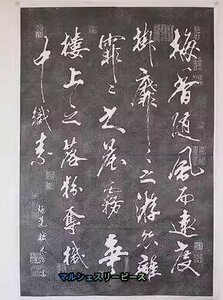 梅香随風而遠度
掛靡々之游絲雜
霏々之晨霧争
樓上之落粉奪機
中織素
マルシェスリーピース